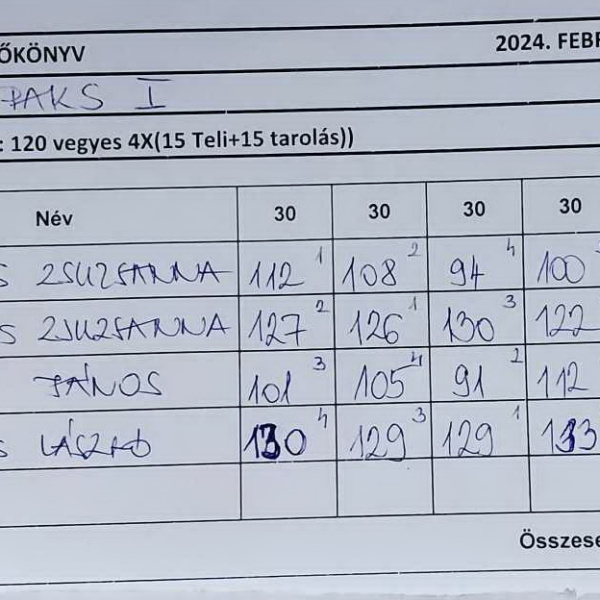 ŐKÖNYV 2024. FEBR
PAKS I
: 120 vegyes 4X(15 Teli+15 tarolás))
Név 30 30 30 30
S ZSUZSANNA 112 1 108 2 94 4 100
S ZSUZSANNA 127 2 126 1 130 3 122
JÁNOS 101 3 105 4 91 2 112
S LÁSZLÓ 130 4 129 3 129 1 133
Összese